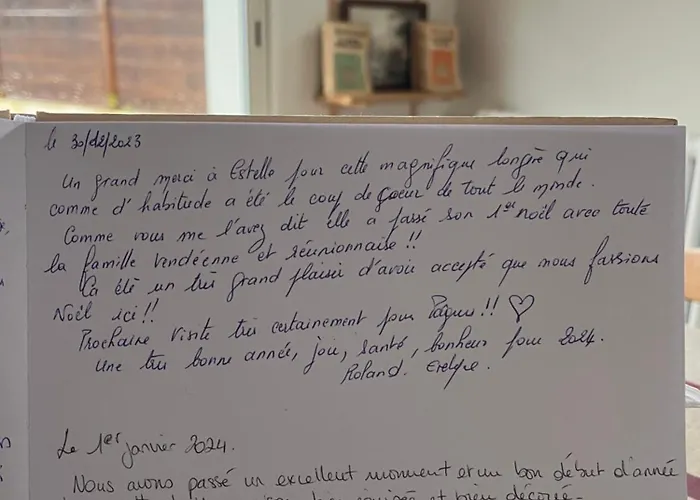 le 30/12/2023
Un grand merci à Estelle pour cette magnifique longère qui
comme d'habitude a été le coup de coeur de tout le monde.
Comme vous me l'avez dit elle a passé son 1er noël avec toute
la famille vendéenne et réunionnaise !!
Ça été un très grand plaisir d'avoir accepté que nous fassions
Noël ici !!
Prochaine visite très certainement pour Pâques !! ♡
Une très bonne année, joie, santé, bonheur pour 2024.
Roland.
Le 1er janvier 2024.
Nous avons passé un excellent moment et un bon début d'année
et bien décoré.